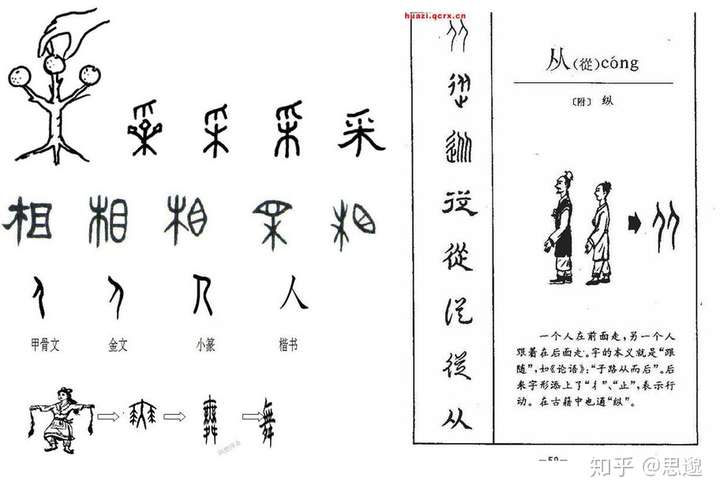 采
相 相 相
人
甲骨文 金文 小篆 楷书
舞
huazi.qcrx.cn
從
從
从
从(從)cóng
〔附〕 纵
一个人在前面走,另一个人
跟着在后面走。字的本义就是“跟
随”,如《论语》:“子路从而后”。后
来字形添上了“彳”、“止”,表示行
动。在古籍中也通“纵”。
知乎 @思邈